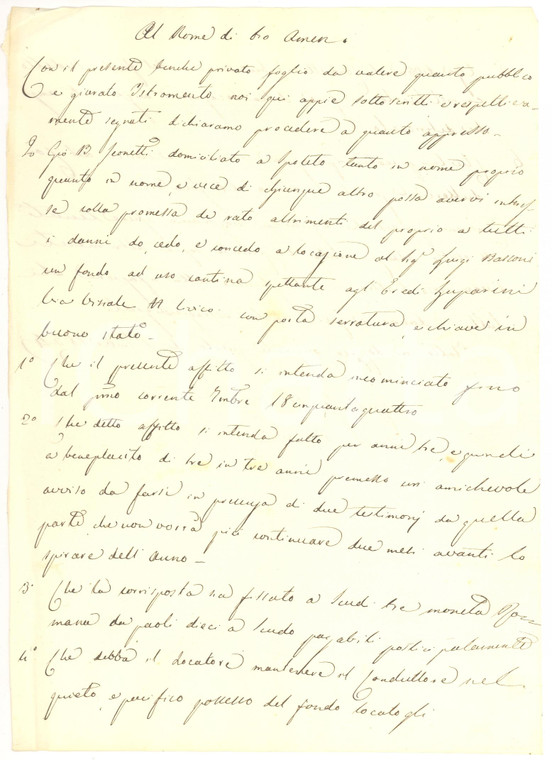 Al Nome di Dio Amen.
Con il presente benche privato foglio da valere quanto pubblico
e giurato Istromento noi qui appie sottoscritti e respettiva-
mente segnati dichiaramo procedere a quanto appresso-
Io Gio B domiciliato a Spoleto tanto in nome proprio
quanto in nome e vece di chiunque altro possa avervi interesse
colla promessa de rato altrimenti del proprio a tutti
i danni do, cedo, e concedo a locazione al Sigr Luigi Bassoni
un fondo ad uso cantina spettante agli Eredi
Via N Civico con porta serratura, e chiave in
buono stato-
1º Che il presente affitto si intenda incominciato fino
dal primo corrente 7mbre 18cinquantaquattro
2º Che detto affitto si intenda fatto per anni tre, e quindi
a beneplacito di tre in tre anni premesso un amichevole
avviso da farsi in presenza di due testimonj da quella
parte che non vorrà più continuare due mesi avanti lo
spirare dell'anno-
3º Che la corrisposta sia fissata a Scudi tre moneta Ro-
mana da paoli dieci a Scudo pagabili posticipatamente
4º Che debba il Locatore mantenere il Conduttore nel
quieto, e pacifico possesso del fondo locatogli